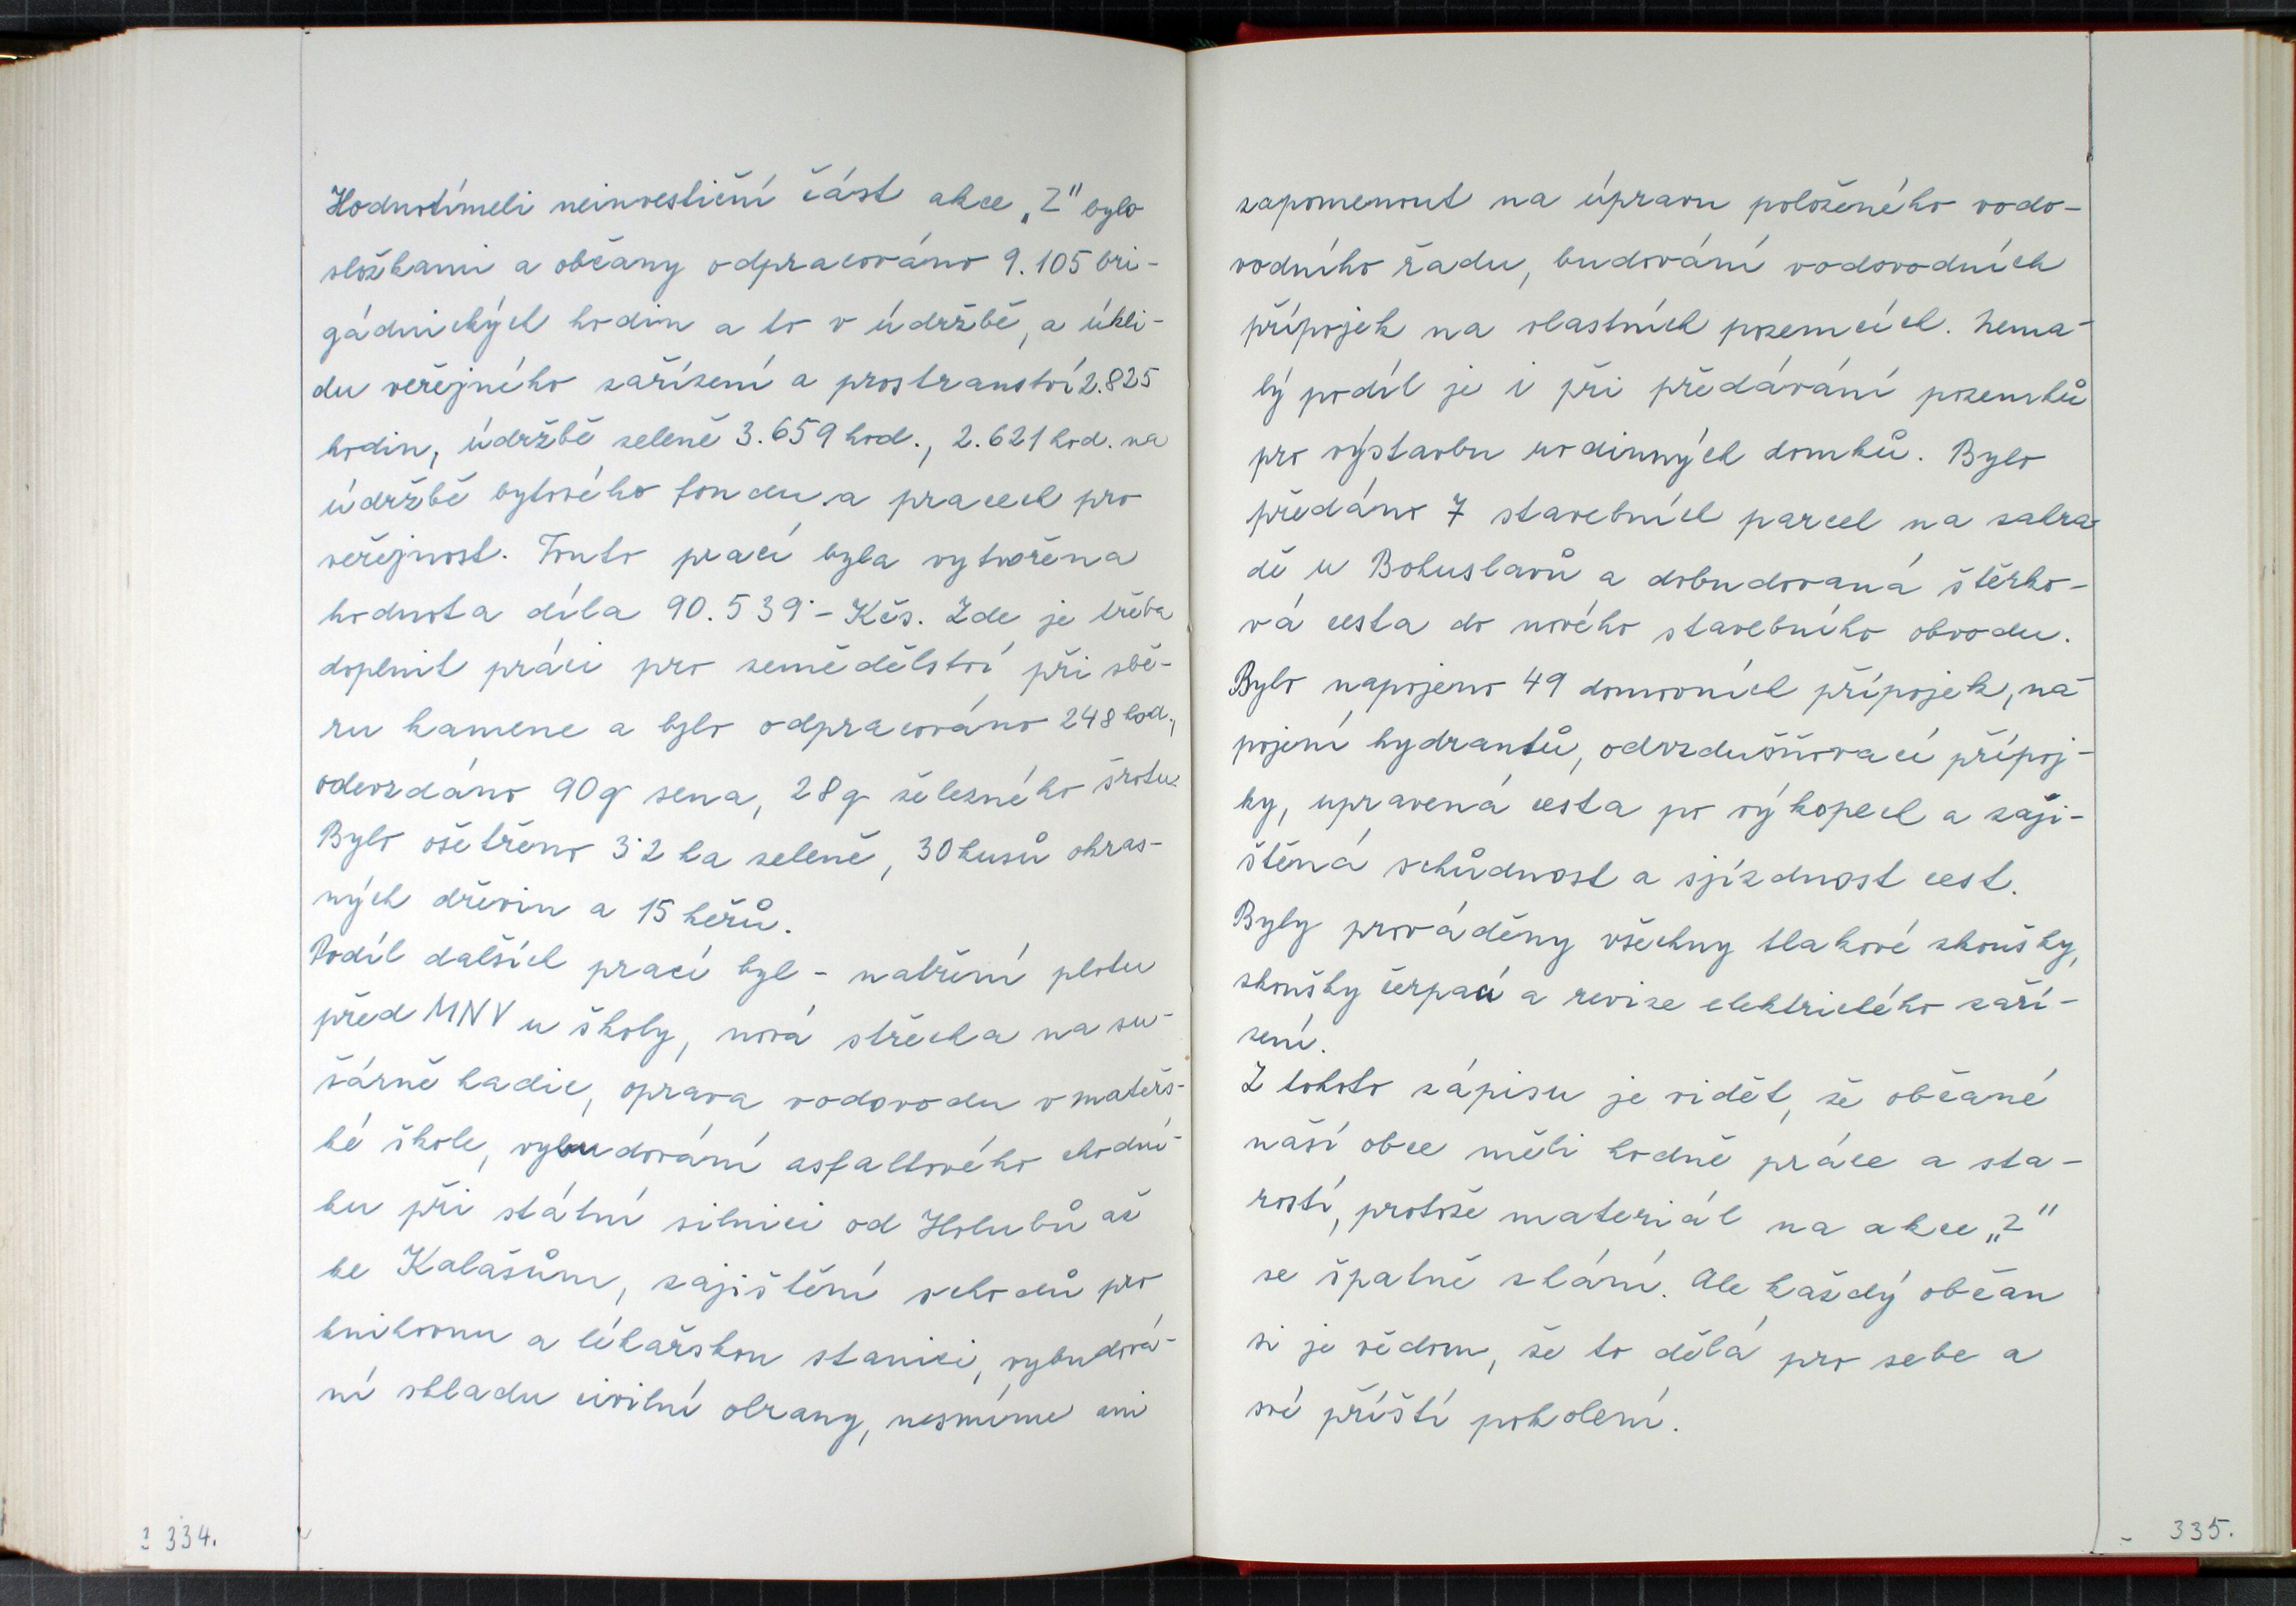 Hodnotímeli neinvestiční část akce „Z" bylo
složkami a občany odpracováno 9.105 bri-
gádnických hodin a to v údržbě, a úkli-
du veřejného zařízení a prostranství 2.825
hodin, údržbě zeleně 3.659 hod., 2.621 hod. na
údržbě bytového fondu a pracech pro
veřejnost. Touto prací byla vytvořena
hodnota díla 90.539·- Kčs. Zde je třeba
doplnit práci pro zemědělství při sbě-
ru kamene a bylo odpracováno 248 hod.,
odevzdáno 90q sena, 28q železného šrotu.
Bylo ošetřeno 3·2 ha zeleně, 30 kusů okras-
ných dřevin a 15 keřů.
Podíl dalších prací byl - natření plotu
před MNV u školy, nová střecha na su-
šárně hadic, oprava vodovodu v mateřs-
ké škole, vybudování asfaltového chodní-
ku při státní silnici od Holubů až
ke Kalašům, zajištění schodů pro
knihovnu a lékařskou stanici, vybudová-
ní skladu civilní obrany, nesmíme ani
334.
zapomenout na úpravu položeného vodo-
vodního řadu, budování vodovodních
přípojek na vlastních pozemcích. Nema-
lý podíl je i při předávání pozemků
pro výstavbu rodinných domků. Bylo
předáno 7 stavebních parcel na zahra-
dě u Bohuslavů a dobudovaná štěrko-
vá cesta do nového stavebního obvodu.
Bylo napojeno 49 domovních přípojek, na-
pojení hydrantů, odvzdušňovací přípoj-
ky, upravená cesta po výkopech a zaji-
štěná schůdnost a sjízdnost cest.
Byly prováděny všechny tlakové zkoušky,
zkoušky čerpací a revize elektrického zaří-
zení.
Z tohoto zápisu je vidět, že občané
naší obce měli hodně práce a sta-
rostí, protože materiál na akce „Z"
se špatně shání. Ale každý občan
si je vědom, že to dělá pro sebe a
své příští pokolení.
335.